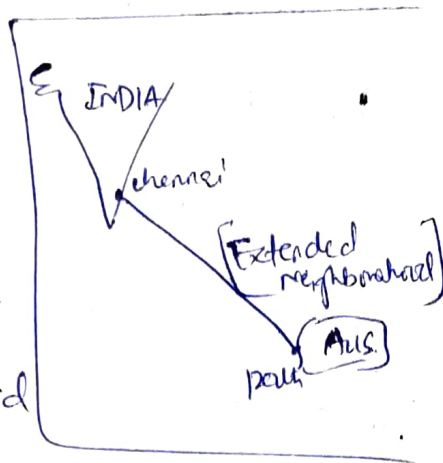 INDIA
chennai
[Extended
neighbourhood]
Aus.